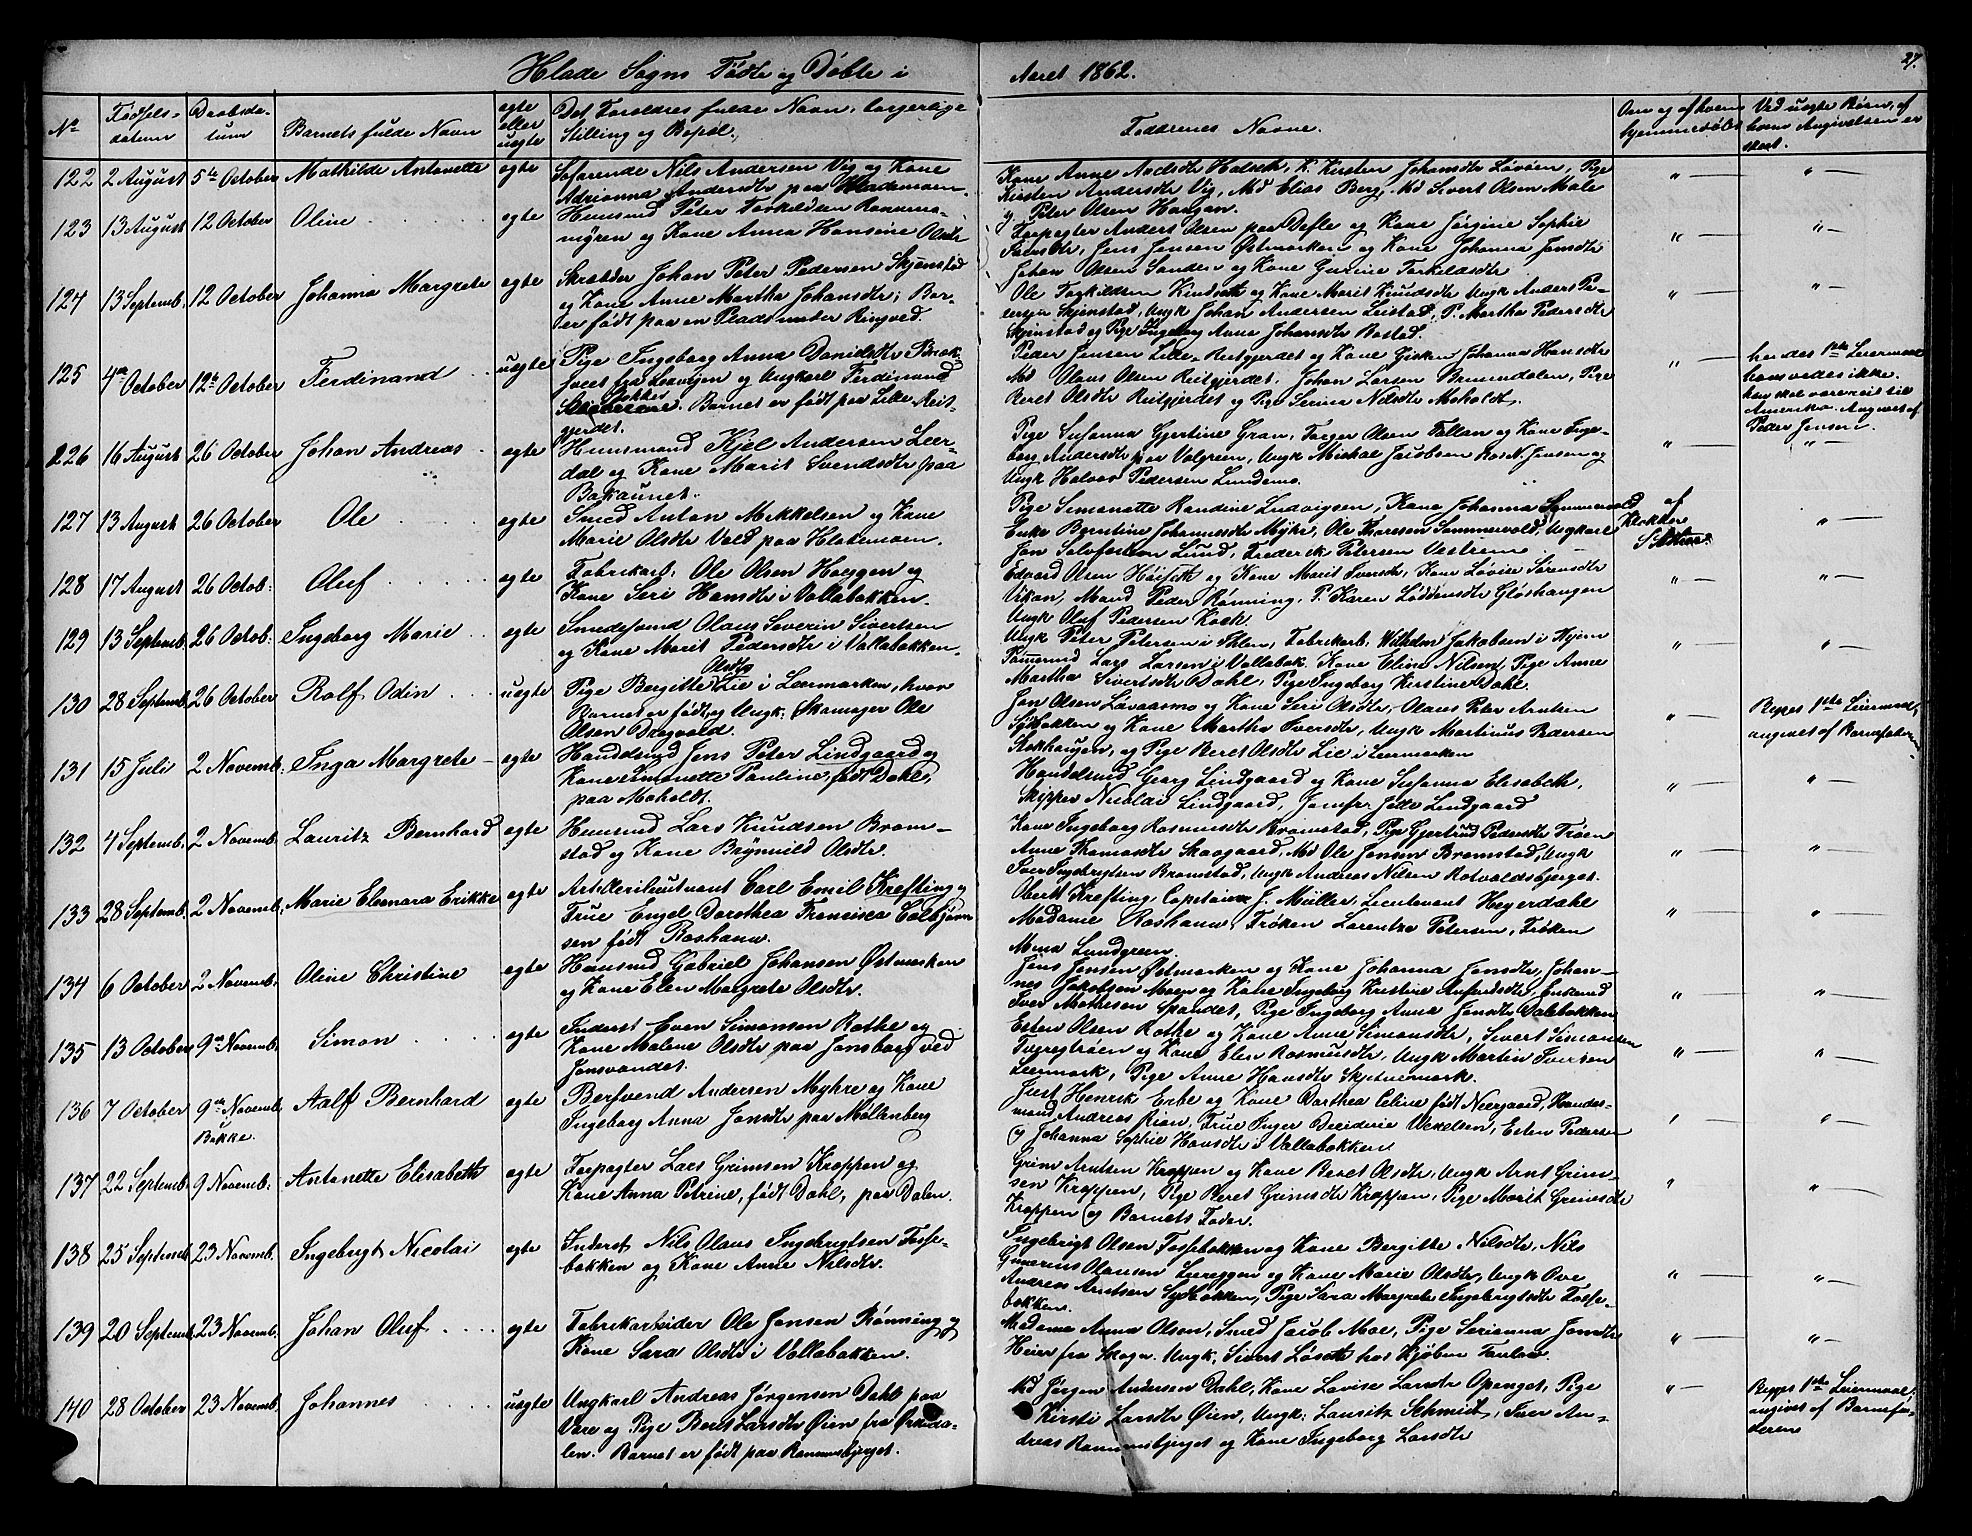 Hlade Sogns Fødte og Døbte i Aaret 1862.
27.
No
Fødsels-
datum
Daabsda-
tum
Barnets fulde Navn
egte
eller
uegte
Det Forældres fulde Navn, borgerlige
Stilling og Bopæl.
Faddrenes Navne.
Om og af hvem
hjemmedøbt
Ved uegte Børn, af
hvem Angivelsen er
skeet.
122 2 August 5te October Mathilde Antonette egte
Søfarende Nils Andersen Vig og Kone
Adrianna Andersdtr paa Hlademoen.
Kirsten Andersdtr Vig, Md Elias Berg, Md Sivert Olsen Mole
og Peter Olsen Haugan.
123 13 August 12 October Oline egte
Huusmd Peter Torkildsen
myren og Kone Anna Hansine Olsdtr
Forpagter Anders Olsen paa Defle og Kone Jørgine Sophie
Jens Jensen Østmarken og Kone Johanna Jensdtr
Johan Olsen Sanden og Kone Gurine Torkildsdtr
124 13 Septemb. 12 October Johanna Margrete egte
Skrædder Johan Peter Pedersen Skjønstad
og Kone Anne Martha Johansdtr; Bar-
er født paa en Plads under Ringved.
Ole Torkildsen og Kone Marit Knudsdtr Ungk Anders Pe-
dersen Skjønstad, Ungk Johan Andersen Leistad, P. Martha Pedersdtr
Skjønstad og Pige Ingeborg Anne Johansdtr Rostad.
125 4de October 12te October Ferdinand uegte
Pige Ingeborg Anna Danielsdtr
fra og Ungkarl Ferdinand
Barnet er født paa Lille Reit-
gjerdet.
Peder Jensen Lille-Reitgjerdet og Kone Gisken Johanna Hansdtr
Md Olaus Olsen Reitgjerdet, Johan Larsen Brundalen, Pige
Beret Olsdtr Reitgjerdet og Pige Serina Nilsdtr Moholdt.
hendes 1ste Leiermaal
hans vedes ikke.
han skal være reist til
Amerika. Angivet af
Peder Jensen
226 16 August 26 October Johan Andreas egte
Huusmand Kjel Andersen Leer-
dal og Kone Marit Svendsdtr paa
Bakaunet.
Pige Susanna Gjertine Gran, Torger Olsen Tallan og Kone Inge-
borg Andersdtr paa Valgreen, Ungk Michal Jacobsen Ros N. Jensen og
Ungk Halvor Pedersen Lundemo.
127 13 August 26 October Ole egte
Smed Anton Mikkelsen og Kone
Marie Olsdtr Vold paa Hlademoen.
Pige Simonette Randine Ludvigsen, Kone Johanna
Enke Berntine Johannesdtr Myhr, Ole Thoresen Sommervold, Ungkarl
Jon Lund, Frederik Petersen
af
Klokker
128 17 August 26 Octob: Oluf egte
Fabrikarb. Ole Olsen Hoggen og
Kone Seri Hansdtr i Vollabakken.
Edvard Olsen og Kone Marit Iversdtr, Kone Lovise Sørensdtr
Vikan, Mand Peder Rønning, P. Karen Gløshaugen
Ungk Olaf Pedersen Kock.
129 13 Septemb. 26 Octob: Ingeborg Marie egte
Smedesvend Olaus Severin Sivertsen
og Kone Marit Pedersdtr i Vollabakken.
Ungk Peter Petersen i Ihlen, Fabrikarb. Wilhelm Jakobsen i Hjem
Lars Larsen i Vollabak. Kone Eline Nilsen, Pige Anne
Martha Sivertsdtr Dahl, Pige Ingeborg Kirstine Dahl.
130 28 Septemb. 26 October Rolf Odin uegte
Olsdtr
Pige Bergitte Lie i Leermarken, hvor
Barnet er født, og Ungk: Skomager Ole
Olsen Dragvold.
Jon Olsen Løvaasmo og Kone Seri Olsdtr, Olaus Peter Arntsen
og Kone Martha Iversdtr, Ungk Martinus Pedersen
Stokhaugen, og Pige Beret Olsdtr Lie i Leermarken
Begges 1ste Leiermaal,
angivet af Barnefaderen
131 15 Juli 2 Novemb. Inga Margrete egte
Handelsmd Jens Peter Lindgaard og
Kone Simonette Pauline, født Dahl,
paa Moholdt.
Handelsmd Georg Lindgaard og Kone Susanna Elisabeth,
Skipper Nicolai Lindgaard, Jomfru Jette Lindgaard
132 4 Septemb. 2 Novemb. Lauritz Bernhard egte
Huusmd Lars Knudsen Brom-
stad og Kone Brynnild Olsdtr.
Kone Ingeborg Rasmusdtr Bromstad, Pige Gjertrud Pedersdtr Trøen
Anne Thomasdtr Skaagaard, Md Ole Jensen Bromstad, Ungk
Iver Ingebrigtsen Bromstad, Ungk Andreas Nilsen Rotvoldsbjerget.
133 28 Septemb. 2 Novemb. Marie Eleonora Erikke egte
Artillerilieutnant Carl Emil Krefting og
Frue Engel Dorothea Francisca Colbjørn-
sen født Roshauw.
Oberst Krefting, Capitain J. Müller, Lieutenant Heyerdahl
Madame Roshauw, Frøken Larentze Petersen, Frøken
Mina Lundgreen.
134 6 October 2 Novemb. Oline Christine egte
Huusmd Gabriel Johansen Østmarken
og Kone Elen Margrete Olsdtr.
Jens Jensen Østmarken og Kone Johanna Jonsdtr, Johan-
nes Jakobsen Moen og Kone Ingeborg Kristine Enkemd
Iver Mathisen Spandet, Pige Ingeborg Anna Jonsdtr Dalebakken
135 13 October 9de Novemb. Simon egte
Inderst Even Simonsen Rothe og
Kone Malene Olsdtr paa Jonsborg ved
Jonsvandet.
Esten Olsen Rothe og Kone Anne Simonsdtr, Sivert Simonsen
og Kone Elen Rasmusdtr, Ungk Martin Iversen
Leermark, Pige Anne Hansdtr Skjetnemark.
136 7 October 9de Novemb. Bakke. Aalf Bernhard egte
Andersen Myhre og Kone
Ingeborg Anna Jonsdtr paa Møllenberg
Just Henrik Erbe og Kone Dorthea Celine født Neergaard, Handes-
mand Andreas Rian, Frue Inger Wexelsen, Esten Pedersen
og Johanna Sophie Hansdtr i Vollabakken.
137 22 Septemb. 9 Novemb: Antonette Elisabeth egte
Forpagter Lars Grimsen Kroppen og
Kone Anna Petrine, født Dahl, paa Dalen.
Grim Arntsen Kroppen og Kone Beret Olsdtr, Ungk Arnt Grim-
sen Kroppen, Pige Beret Grimsdtr Kroppen, Pige Marit Grimsdtr
Kroppen og Barnets Fader.
138 25 Septemb 23 Novemb. Ingebrigt Nicolai egte
Inderst Nils Olaus Ingebrigtsen Fosse-
bakken og Kone Anne Nilsdtr.
Ingebrigt Olsen Fossebakken og Kone Bergitte Nilsdtr, Nils
Gunerius Olausen Leereggen og Kone Marie Olsdtr, Ungk Ove
Andreas Arntsen Pige Sara Margrete Ingebrigtsdtr Fosse-
bakken.
139 20 Septemb 23 Novemb. Johan Oluf egte
Fabrikarbeider Ole Jensen Rønning og
Kone Sara Olsdtr i Vollabakken.
Madame Anna Olsen, Smed Jacob Moe, Pige Serianna Jonsdtr
Heier fra Skogn. Ungk. Sivert hos Kjøbm
140 28 October 23 Novemb Johannes uegte
Ungkarl Andreas Jørgensen Dahl paa
Vore og Pige Beret Larsdtr Øien fra Orkeda-
len. Barnet er født paa Rønningsbjerget.
Md Jørgen Andersen Dahl, Kone Lovise Larsdtr Openget, Pige
Kirsti Larsdtr Øien, Ungk: Lauritz Schmidt, Iver An-
dreas Rønningsbjerget og Kone Ingeborg Larsdtr
Begges 1ste Leiermaal,
angivet af Barnefa-
deren